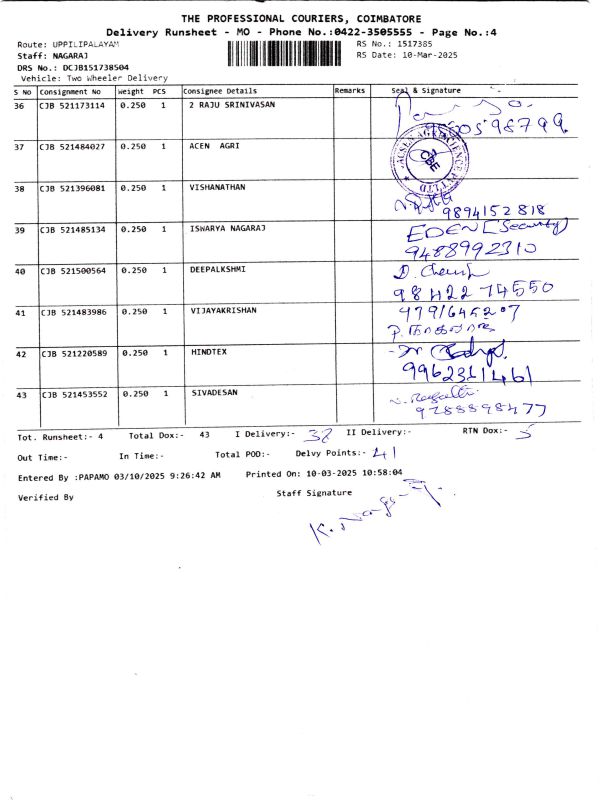 THE PROFESSIONAL COURIERS, COIMBATORE
Delivery Runsheet - MO - Phone No.:0422-3505555 - Page No.:4
Route: UPPILIPALAYAM
RS No.: 1517385
Staff: NAGARAJ
RS Date: 10-Mar-2025
DRS No.: DCJB151738504
Vehicle: Two Wheeler Delivery
S No Consignment No Weight PCS Consignee Details Remarks Seal & Signature
36 CJB 521173114 0.250 1 2 RAJU SRINIVASAN
37 CJB 521484027 0.250 1 ACEN AGRI
38 CJB 521396081 0.250 1 VISHANATHAN
9894152818
39 CJB 521485134 0.250 1 ISWARYA NAGARAJ EDEN (Security)
9488992310
40 CJB 521500564 0.250 1 DEEPALKSHMI D.
98422 74550
41 CJB 521483986 0.250 1 VIJAYAKRISHAN 9791645207
42 CJB 521220589 0.250 1 HINDTEX
9962311461
43 CJB 521453552 0.250 1 SIVADESAN
9788898477
Tot. Runsheet:- 4 Total Dox:- 43 I Delivery:- 38 II Delivery:- RTN Dox:- 5
Out Time:- In Time:- Total POD:- Delvy Points:- 41
Entered By :PAPAMO 03/10/2025 9:26:42 AM Printed On: 10-03-2025 10:58:04
Verified By Staff Signature